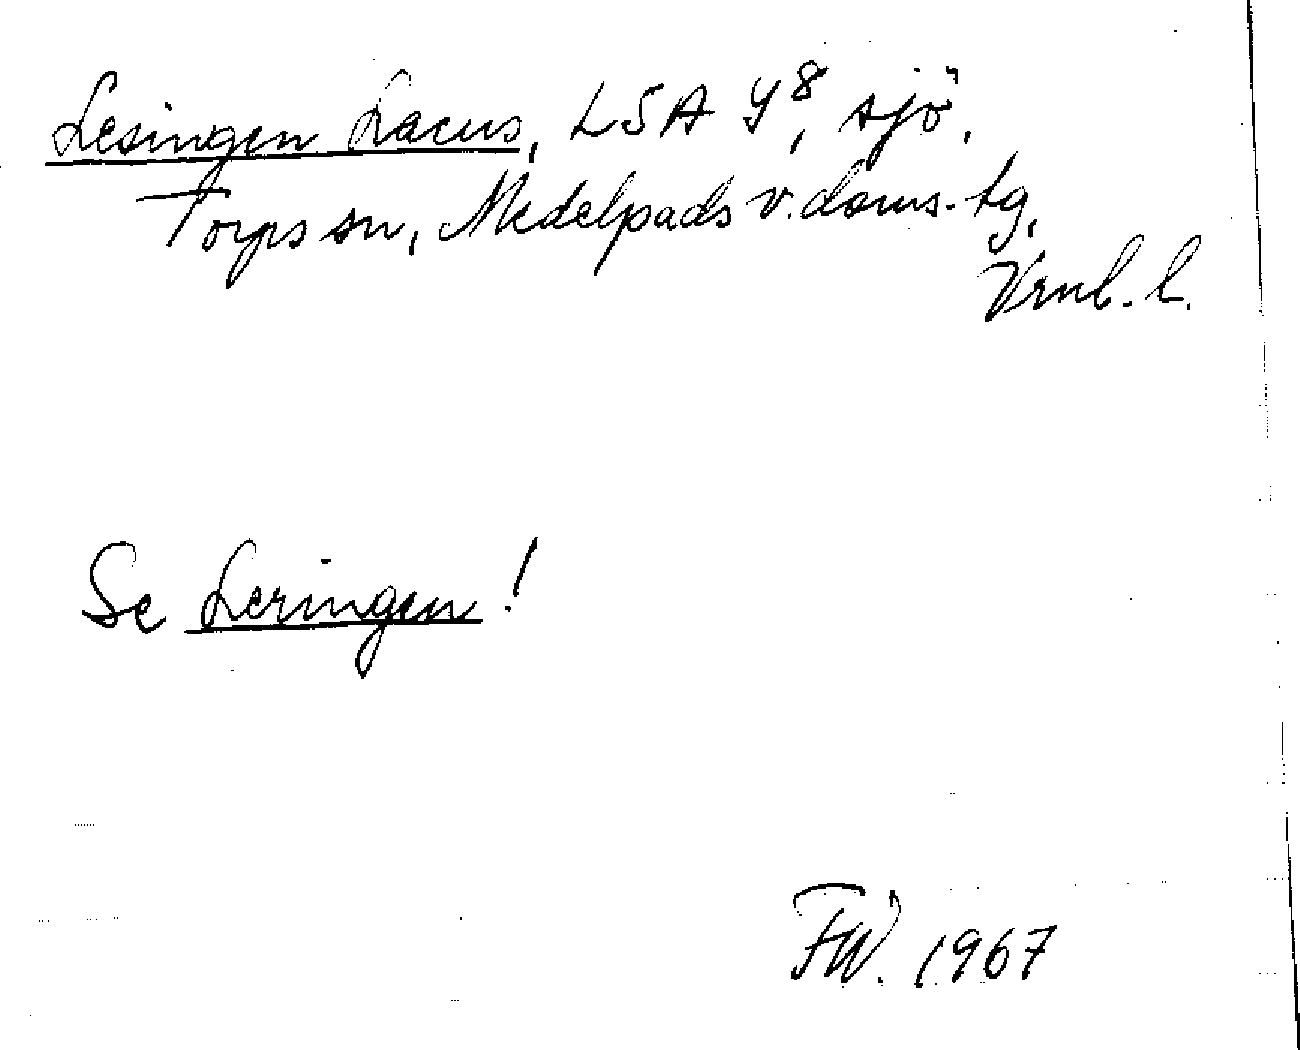 Lesingen Lacus, LSA Y8, sjö.
Torps sn, Medelpads v. doms. tg,
Vrnl. l.
Se Leringen!
FW. 1967